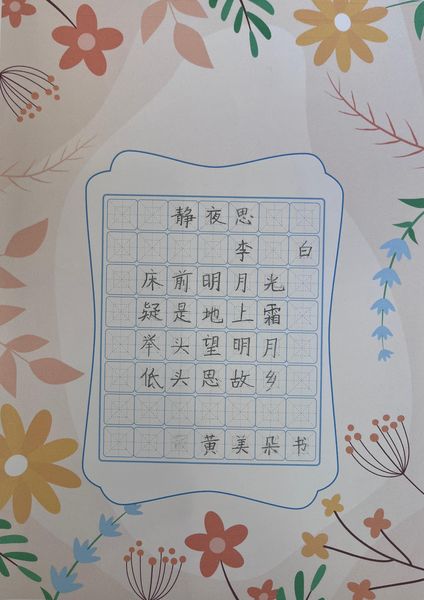 静夜思
李 白
床前明月光
疑是地上霜
举头望明月
低头思故乡
黄美朵书